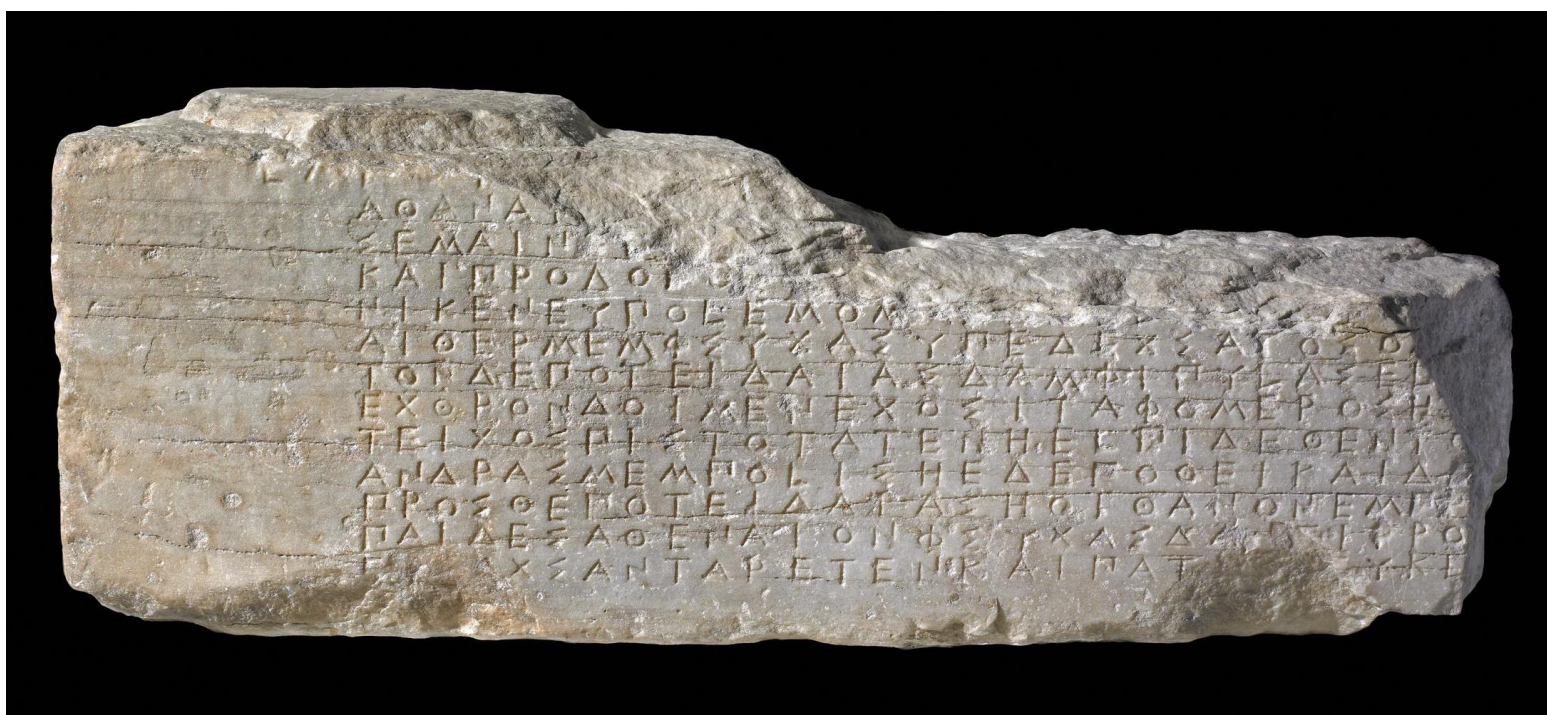 ΑΘΑΝΑ
ΣΕΜΑΙΝ
ΚΑΙΠΡΟΓΟ
ΝΙΚΕΝΕΥΠΟΛΕΜΟΜ
ΑΙΘΕΡΜΕΜΦΣΥΧΑΣΥΠΕΔΕΧΣΑΤΟΣΟ
ΤΟΝΔΕΠΟΤΕΙΔΑΙΑΣΔΑΜΦΙΠΥΛΑΣΕΛ
ΕΧΘΡΟΝΔΟΙΜΕΝΕΧΟΣΙΤΑΦΟΜΕΡΟΣΗ
ΤΕΙΧΟΣΠΙΣΤΟΤΑΤΕΝΗΕΛΠΙΔΕΘΕΝΤΟ
ΑΝΔΡΑΣΜΕΜΠΟΛΙΣΗΕΔΕΠΟΘΕΙΚΑΙΔ
ΠΡΟΣΘΕΠΟΤΕΙΔΑΙΑΣΗΟΙΘΑΝΟΝΕΜΠΡ
ΠΑΙΔΕΣΑΘΕΝΑΙΟΝΦΣΥΧΑΣΔΑΝΤΙΡΡΟ
ΧΣΑΝΤΑΡΕΤΕΝΚΑΙΠΑΤ ΚΛ